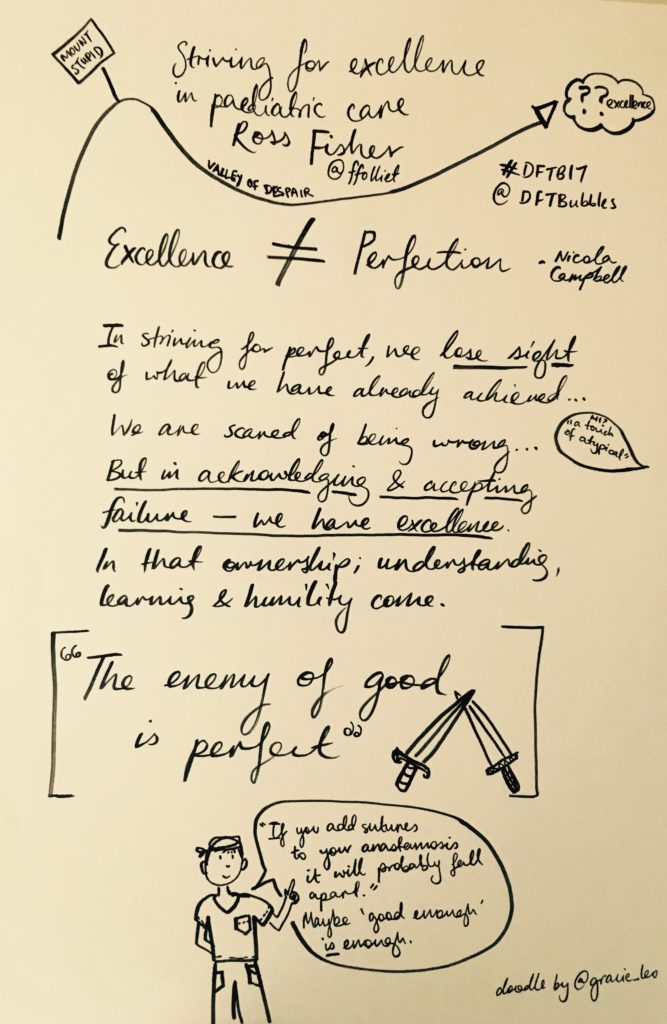 MOUNT
STUPID
Striving for excellence
in paediatric care
Ross Fisher
@ffolliet
VALLEY OF DESPAIR
?? excellence
#DFTB17
@DFTBubbles
Excellence ≠ Perfection - Nicola
Campbell
In striving for perfect, we lose sight
of what we have already achieved...
We are scared of being wrong...
"a touch
of atypical"
But in acknowledging & accepting
failure — we have excellence.
In that ownership; understanding,
learning & humility come.
"The enemy of good
is perfect"
"If you add sutures
to your anastamosis
it will probably fall
apart."
Maybe 'good enough'
is enough.
doodle by @gracie_leo